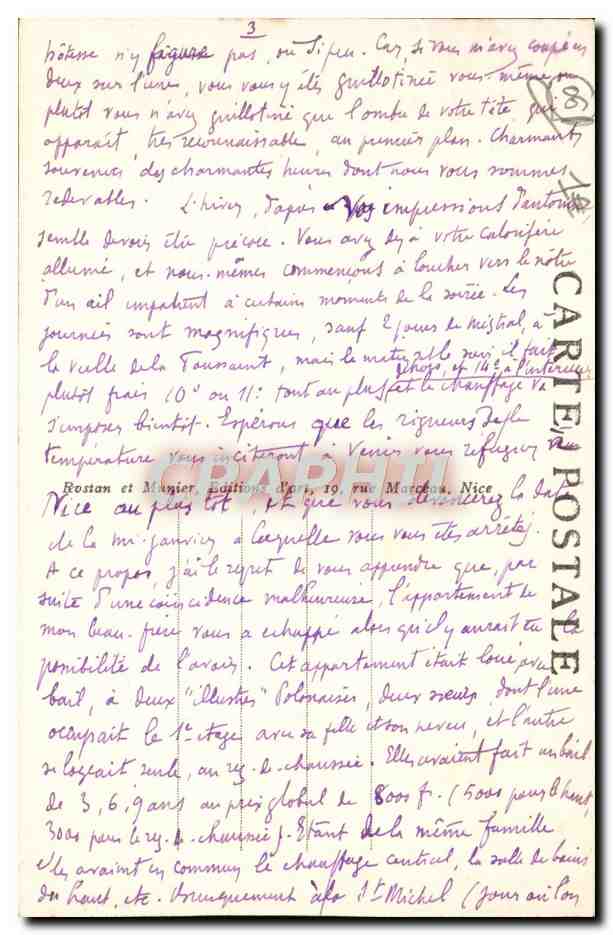 3
hôtesse n'y figure pas, ou si peu. Car, si vous n'avez coupé en
deux sur l'une, vous vous y êtes guillotinée vous-même ou
plutôt vous n'avez guillotiné que l'ombre de votre tête qui
apparaît, très reconnaissable, au premier plan. Charmants
souvenirs des charmantes heures dont nous vous sommes
redevables. L'hiver, d'après vos impressions d'automne
semble devoir être précoce. Vous avez déjà votre calorifère
allumé, et nous-mêmes commençons à loucher vers le nôtre
d'un œil impatient à certains moments de la soirée. Les
journées sont magnifiques, sauf 2 jours de mistral, à
la veille de la Toussaint, mais le matin et le soir, il fait
dehors, et 14° à l'intérieur
plutôt frais 10° ou 11° tout au plus et le chauffage va
s'imposer bientôt. Espérons que les rigueurs de la
température vous inciteront à venir vous réfugier
Rostan et Munier, Editions d'art, 19, rue Marceau, Nice
CPARAMA
Nice au plus tôt, et que vous devancerez la date
de la mi-janvier à laquelle vous vous êtes arrêtés.
A ce propos, j'ai le regret de vous apprendre que, par
suite d'une coïncidence malheureuse, l'appartement de
mon beau-frère vous a échappé alors qu'il y aurait eu
possibilité de l'avoir. Cet appartement était loué, avec
bail, à deux "illustres" Polonaises, deux sœurs, dont l'une
occupait le 1er étage avec sa fille et son neveu, et l'autre
se logeait seule, au rez-de-chaussée. Elles avaient fait un bail
de 3, 6, 9 ans au prix global de 8000 fr. (5000 pour le haut,
3000 pour le rez-de-chaussée). Etant de la même famille
elles avaient en commun le chauffage central, la salle de bains
du haut, etc. Brusquement à la St Michel (jour où l'on
CARTE POSTALE
06